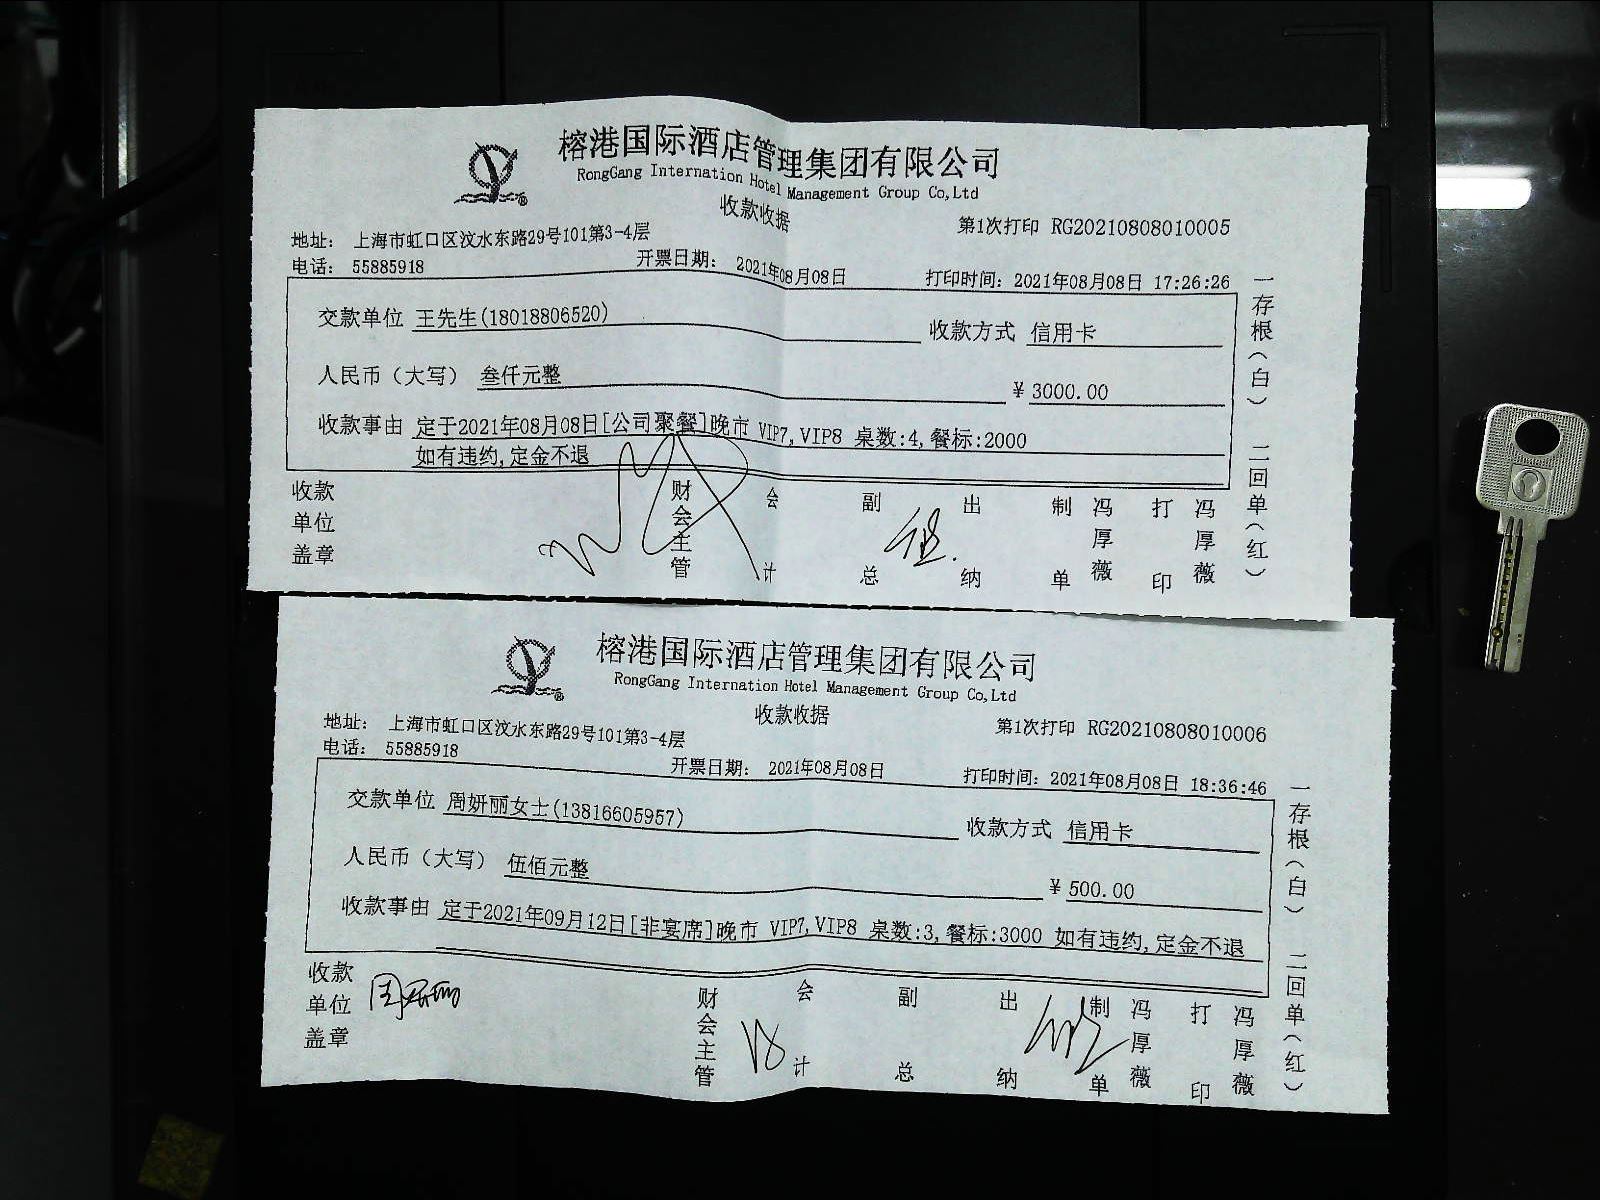 榕港国际酒店管理集团有限公司
RongGang Internation Hotel Management Group Co,Ltd
收款收据
第1次打印 RG20210808010005
地址: 上海市虹口区汶水东路29号101第3-4层
电话: 55885918
开票日期: 2021年08月08日
打印时间: 2021年08月08日 17:26:26
交款单位 王先生(18018806520)
收款方式 信用卡
人民币（大写） 叁仟元整
¥ 3000.00
收款事由 定于2021年08月08日[公司聚餐]晚市 VIP7,VIP8 桌数:4,餐标:2000
如有违约,定金不退
收款单位盖章
财会主管
会计
副总
出纳
制单
冯厚薇
打印
冯厚薇
一存根(白)
二回单(红)
榕港国际酒店管理集团有限公司
RongGang Internation Hotel Management Group Co,Ltd
收款收据
第1次打印 RG20210808010006
地址: 上海市虹口区汶水东路29号101第3-4层
电话: 55885918
开票日期: 2021年08月08日
打印时间: 2021年08月08日 18:36:46
交款单位 周妍丽女士(13816605957)
收款方式 信用卡
人民币（大写） 伍佰元整
¥ 500.00
收款事由 定于2021年09月12日[非宴席]晚市 VIP7,VIP8 桌数:3,餐标:3000 如有违约,定金不退
收款单位盖章
财会主管
会计
副总
出纳
制单
冯厚薇
打印
冯厚薇
一存根(白)
二回单(红)